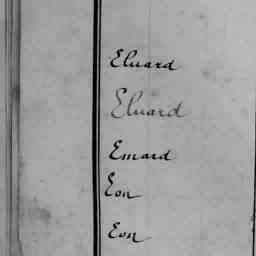 Eluard
Eluard
Emard
Eon
Eon